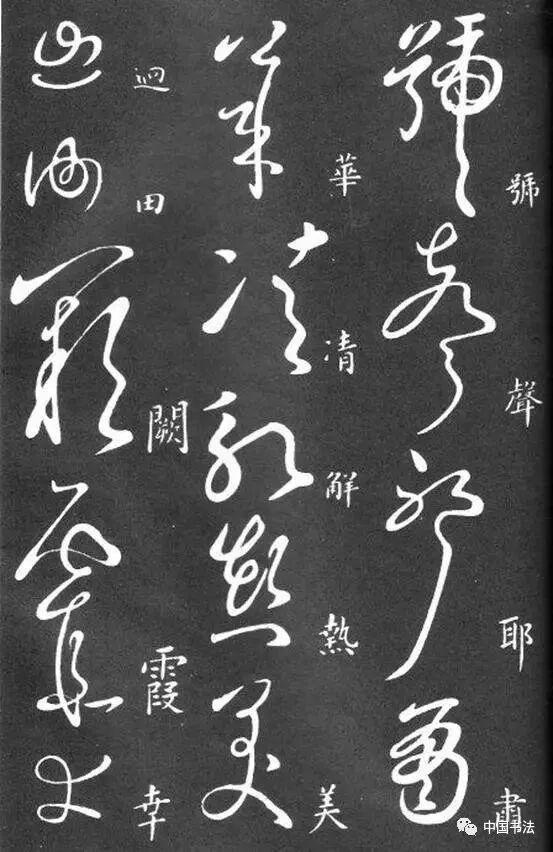 號聲耶肅
華清解熱美
迥田闕霞幸
中国书法